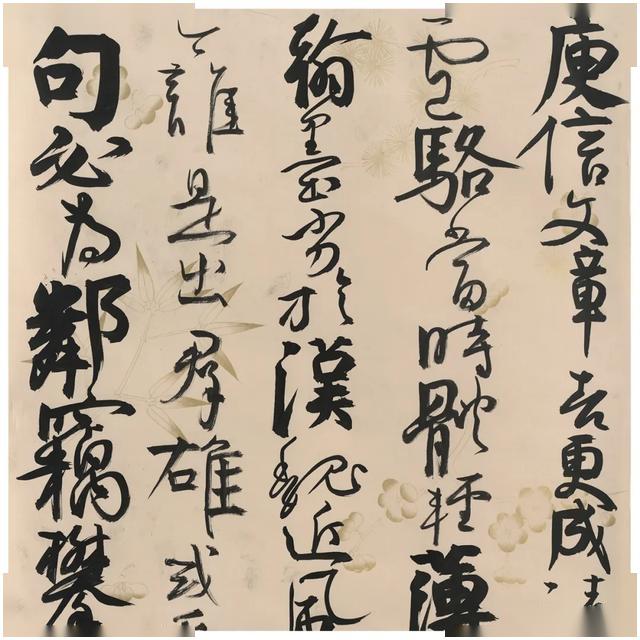 庾信文章老更成
盧駱當時體輕薄
翰墨劣於漢魏近風
公誰是出群雄或
句必為鄰竊攀